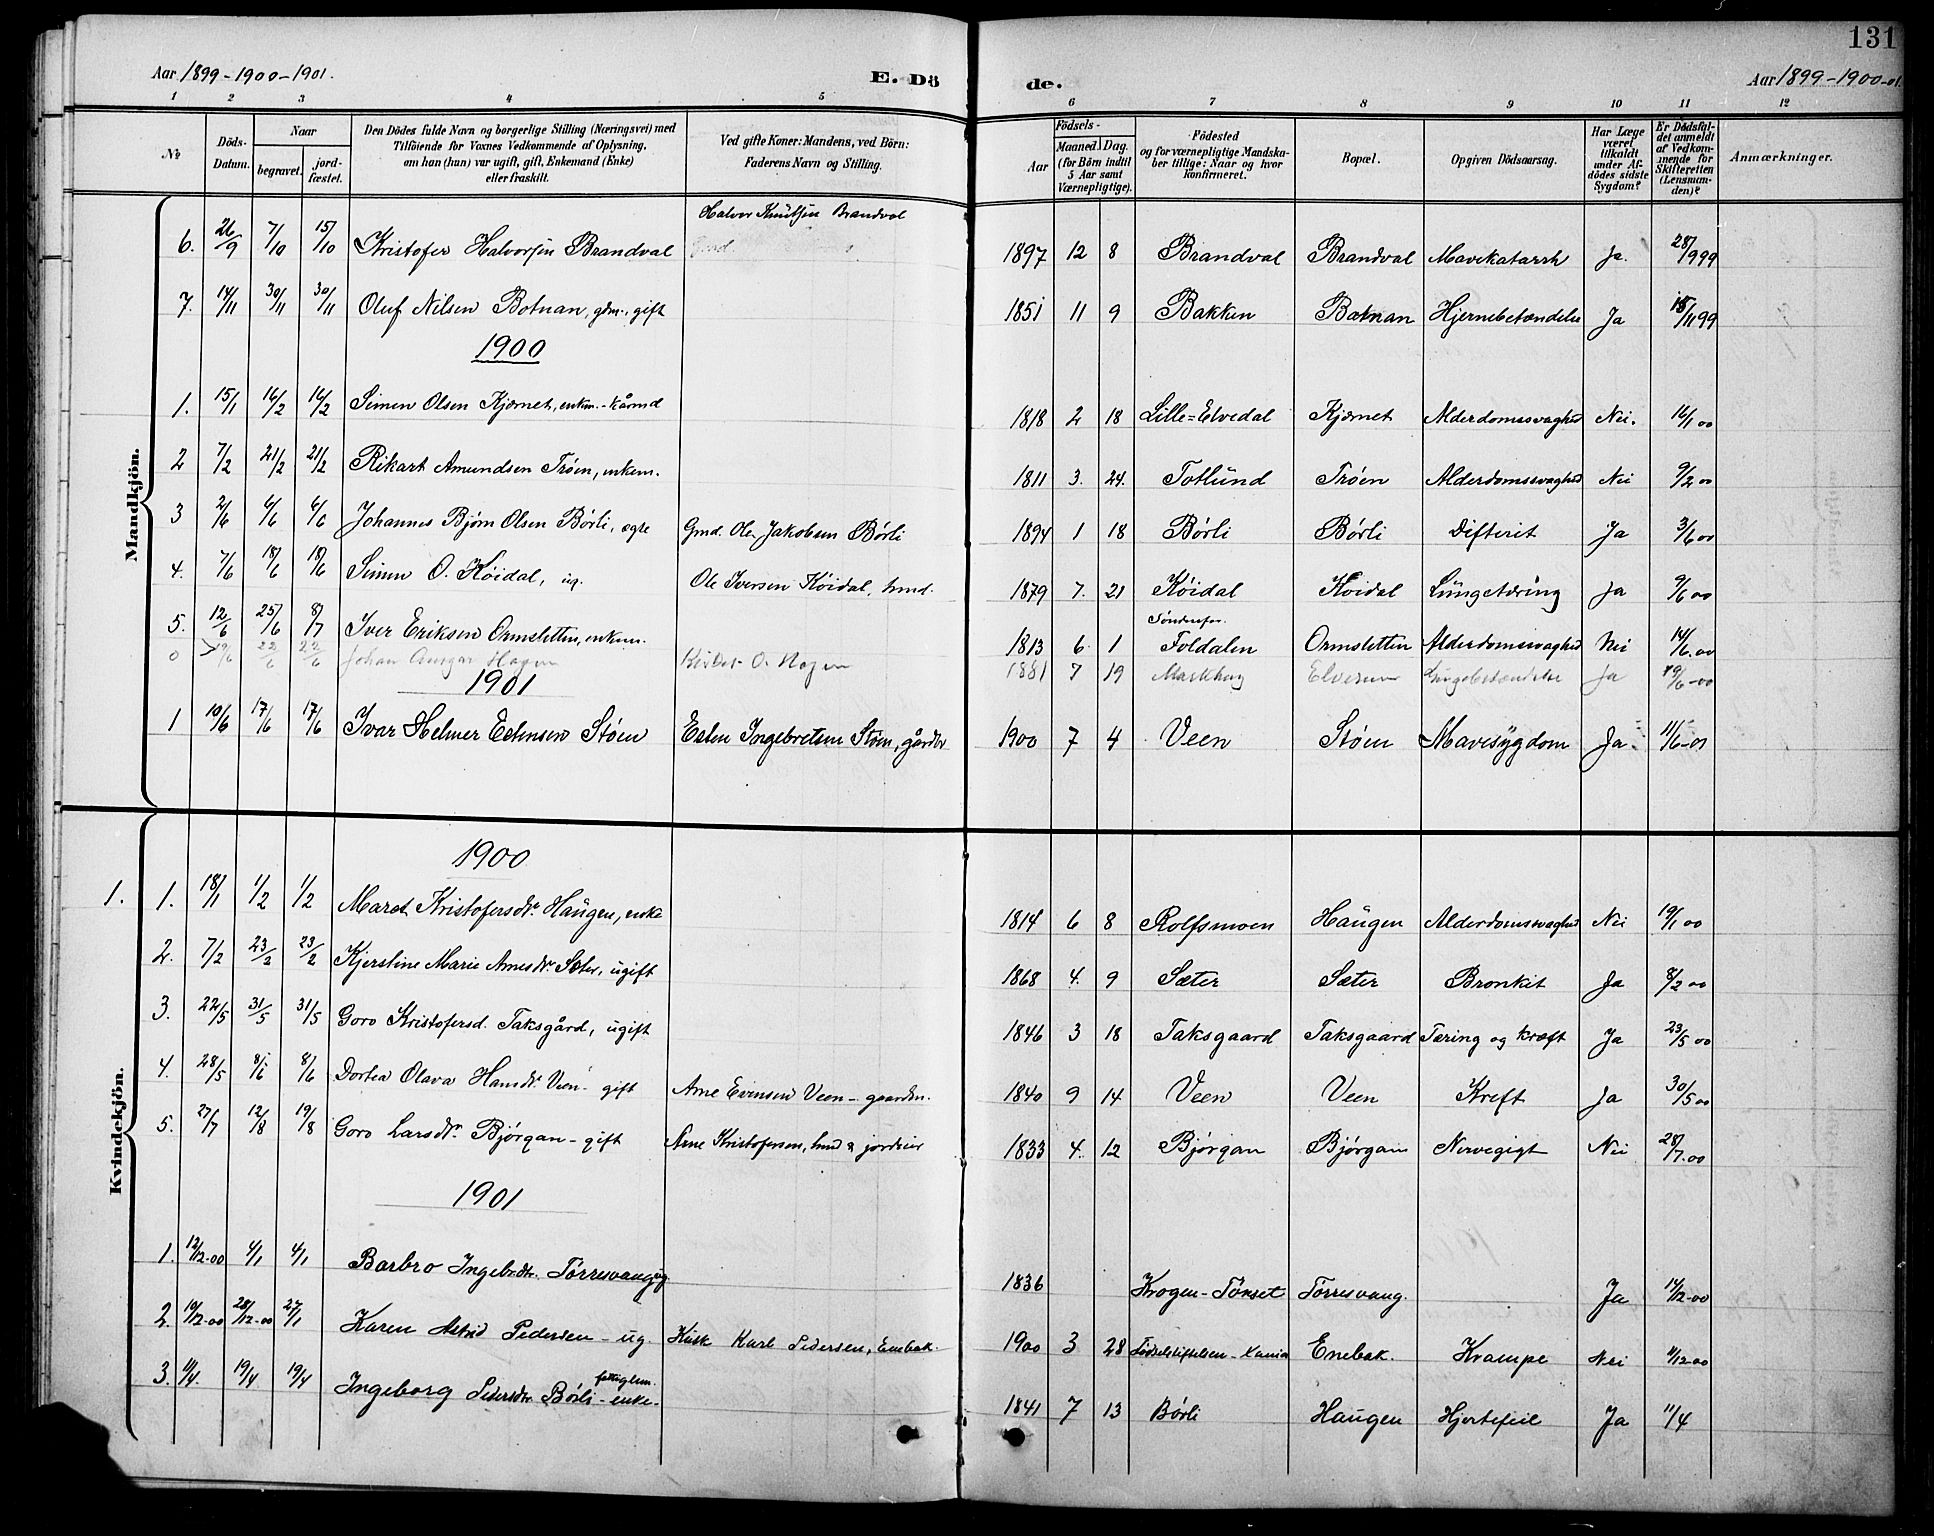 131
Aar 1899-1900-1901. E. Dö de. Aar 1899-1900-01
1 2 3 4 5 6 7 8 9 10 11 12
№ Döds-Datum. Naar begravet. jordfæstet. Den Dödes fulde Navn og borgerlige Stilling (Næringsvei) med Tilföiende for Voxnes Vedkommende af Oplysning, om han (hun) var ugift, gift, Enkemand (Enke) eller fraskilt. Ved gifte Koner: Mandens, ved Börn: Faderens Navn og Stilling. Födsels- Aar Maaned Dag. (for Börn indtil 5 Aar samt Værnepligtige). Födested og for værnepligtige Mandskaber tillige: Naar og hvor konfirmeret. Bopæl. Opgiven Dödsaarsag. Har Læge været tilkaldt under Afdödes sidste Sygdom? Er Dödsfaldet anmeldt af Vedkommende for Skifteretten (Lensmanden)? Anmærkninger.
Mandkjön.
Halvor Knutsen Brandvol
6. 26/9 7/10 15/10 Kristofer Halvorsen Brandval 1897 12 8 Brandval Brandval Mavekatarrh Ja. 28/9 99
7. 14/11 30/11 30/11 Oluf Nilsen Botnan, gdm., gift 1851 11 9 Bakken Botnan Hjernebetændelse Ja 15/11 99
1900
1. 15/1 16/2 16/2 Simen Olsen Kjærnet, enkm. - kårmd 1818 2 18 Lille=Elvedal Kjærnet Alderdomssvaghed Nei. 16/1 00
2 7/2 21/2 21/2 Rikart Amundsen Trøen, enkem. 1811 3. 24. Totlund Trøen Alderdomssvaghed Nei 9/2 00
3 2/6 6/6 6/6 Johannes Bjørn Olsen Børli, ægte Gmd. Ole Jakobsen Børli 1894 1 18 Børli Børli Difterit Ja 3/6 00
4. 7/6 18/6 18/6 Simen O. Køidal, ug. Ole Iversen Køidal, hmd. 1879 7. 21 Køidal Køidal Lungetæring Ja 9/6 00
5. 12/6 25/6 8/7 Iver Eriksen Ormsletten, enkem. Søndenfor Foldalen 1813 6. 1 Ormsletten Alderdomssvaghed Nei 14/6 00
0 19/6 22/6 22/6 Johan Ansgar Hagen O. Hagen 1881 7 19 Elverum Lungebetændelse Ja 19/6-00
1901
1 10/6 17/6 17/6 Ivar Helmer Estensen Støen Esten Ingebretsen Støen, gårdbr 1900 7 4 Veen Støen Mavesygdom Ja. 11/6-01
Kvindekjön.
1900
1. 1. 18/1 1/2 1/2 Maret Kristofersdr. Haugen, enke 1814 6 8 Rolfsmoen Haugen Alderdomssvaghed Nei 19/1 00
2. 7/2 23/2 23/2 Kjerstine Marie Arnesdr. Sæter, ugift 1868 4. 9 Sæter Sæter Bronkit Ja 8/2 00
3. 22/5 31/5 31/5 Goro Kristofersd. Taksgård, ugift 1846 3 18 Taksgaard Taksgaard Tæring og kræft Ja 23/5 00
4. 28/5 8/6 8/6 Dortea Olava Hansdr. Veen - gift Arne Evensen Veen - gaardm. 1840 9 14 Veen Veen Kreft Ja 30/5 00
5. 27/7 12/8 19/8 Goro Larsdr. Bjørgan - gift Arne Kristofersen, hmd & jordeier 1833 4. 12 Bjørgan Bjørgan Nervegigt Nei 28/7.00
1901
1. 12/12-00 4/1 4/1 Barbro Ingebrdtr. Tørresvang ug. 1836 Krogen - Tönset Tørresvang. Ja 14/12-00
2. 10/12-00 28/12-00 27/1 Karen Astrid Pedersen - ug. Kusk Karl Pedersen, Enebak. 1900 3 28 Fødselsstiftelsen - Xania Enebak. Krampe Nei 11/12-00
3. 11/4. 19/4 19/4 Ingeborg Pedersdtr Børli - fattiglem. enke. 1841 7 13 Børli Haugen Hjertefeil Ja 11/4